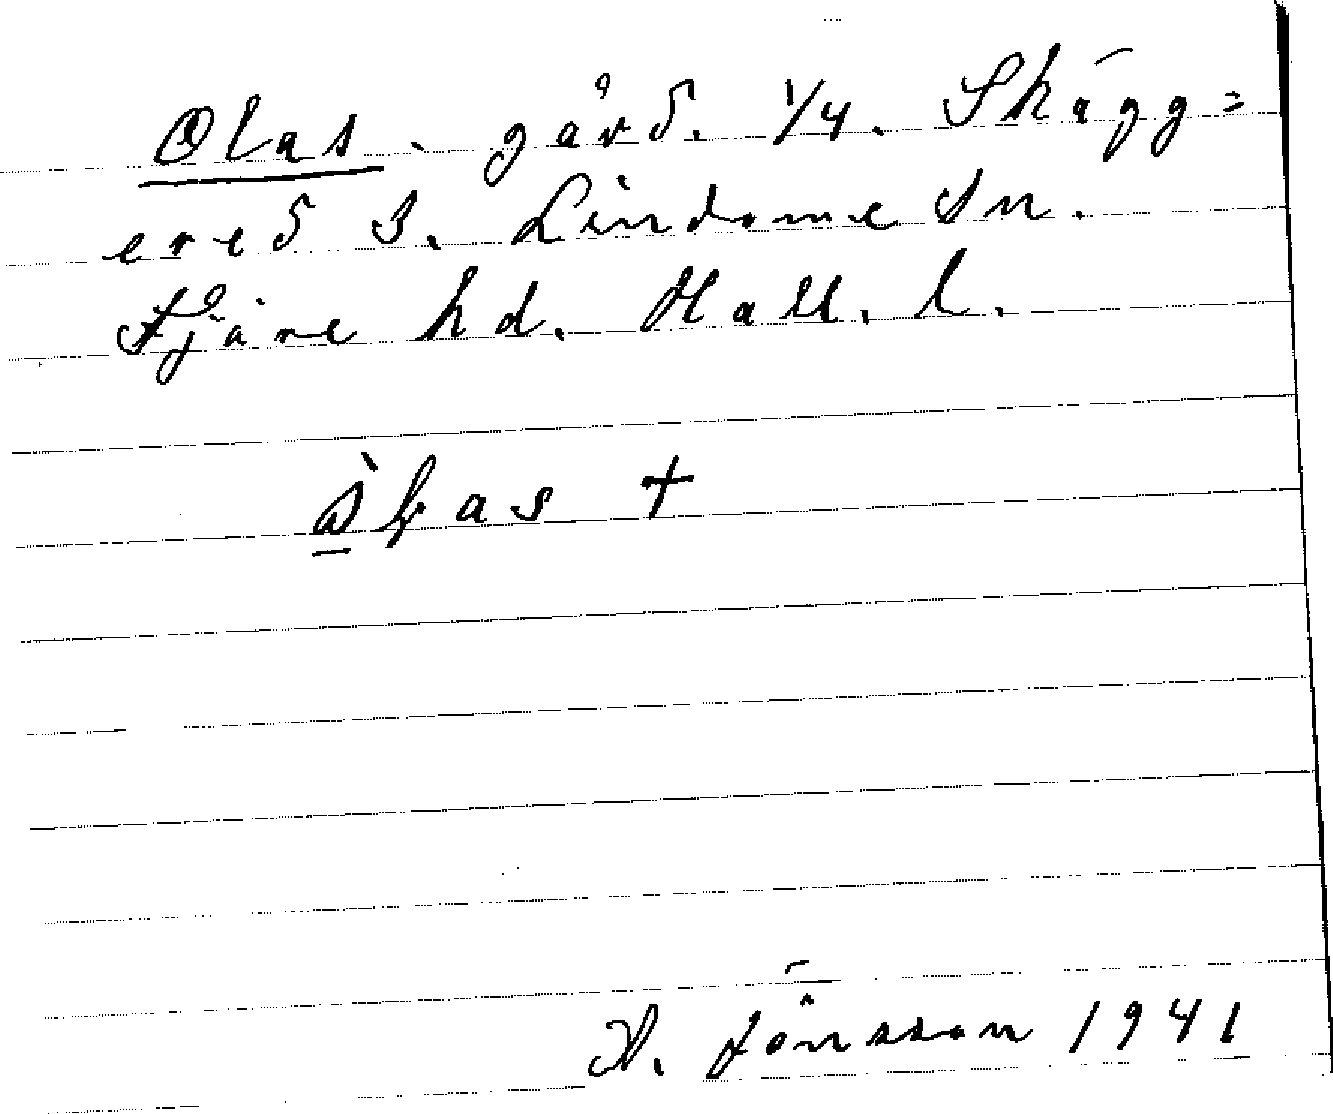 Olas. gård. 1/4. Skägg=
ered 3. Lindome Sn.
Fjäre hd. Hall. l.
as +
A. Jönsson 1941